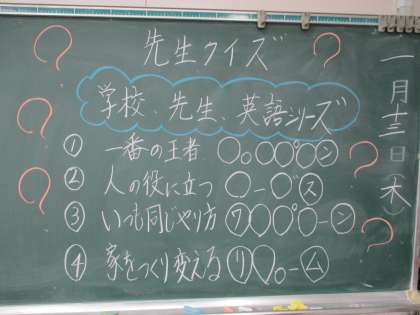 先生クイズ
学校、先生、英語シリーズ
① 一番の王者 ○。○○゜○ン
② 人の役に立つ ○ー○゛ス
③ いつも同じやり方 ワ○○゜○ーン
④ 家をつくり変える リ○。ーム
一月十三日(木)